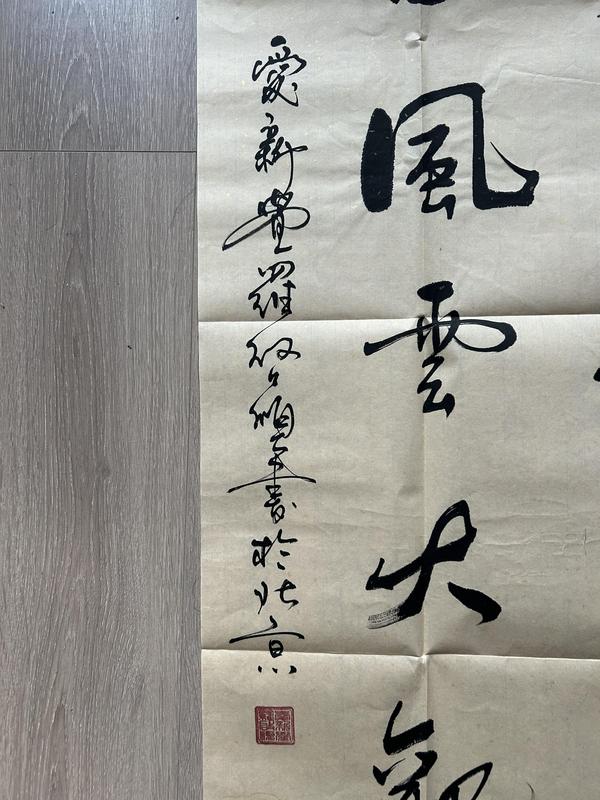 風雲大
愛新覺羅啓順書於北京